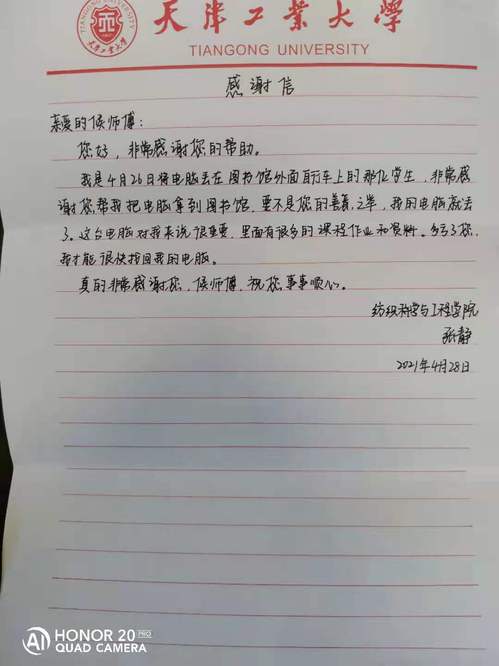 天津工业大學
TIANGONG UNIVERSITY
感谢信
亲爱的候师傅：
您好，非常感谢您的帮助。
我是4月26日将电脑丢在图书馆外面自行车上的那位学生，非常感
谢您帮我把电脑拿到图书馆，要不是您的善意之举，我的电脑就丢
了。这台电脑对我来说很重要，里面有很多的课程作业和资料。多亏了您，
我才能很快找回我的电脑。
真的非常感谢您，候师傅，祝您事事顺心。
纺织科学与工程学院
张静
2021年4月28日
HONOR 20 PRO
QUAD CAMERA